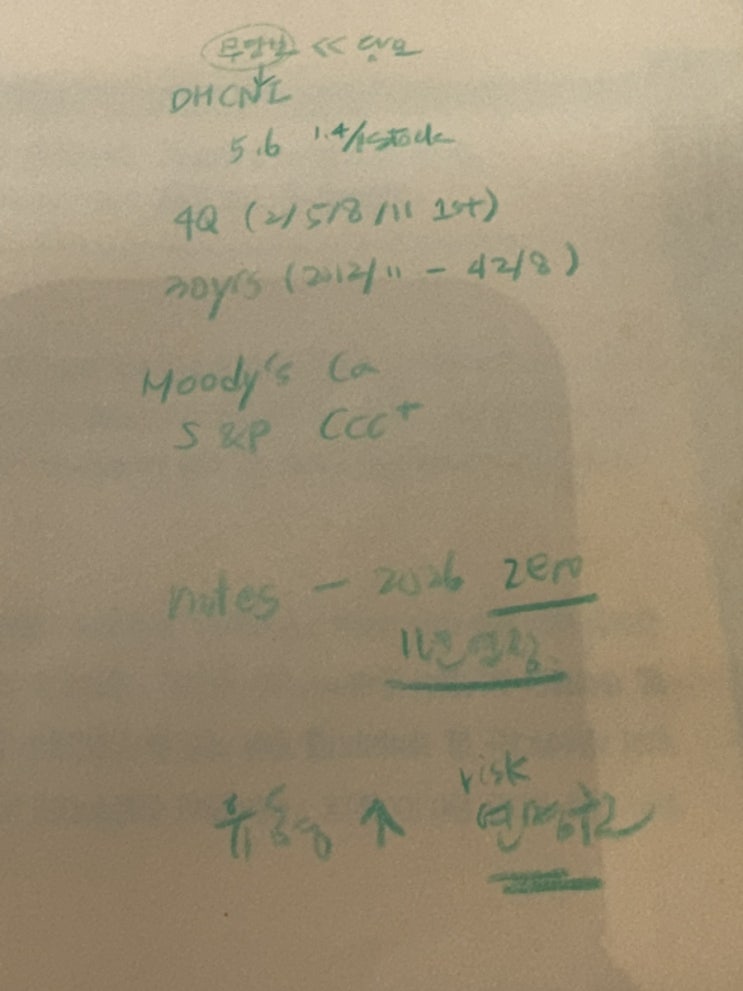 무담보 << 담보
DHCNI
5.6 1.4/1stock
4Q (2/5/8/11 1st)
30yrs (2012/11 - 42/8)
Moody's Ca
S&P CCC+
notes - 2026 zero
11년 연장
유동성 ↑ risk